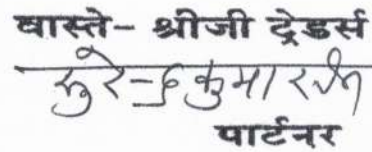 वास्ते- श्रीजी ट्रेडर्स
सुरेन्द्रकुमार जैन
पार्टनर